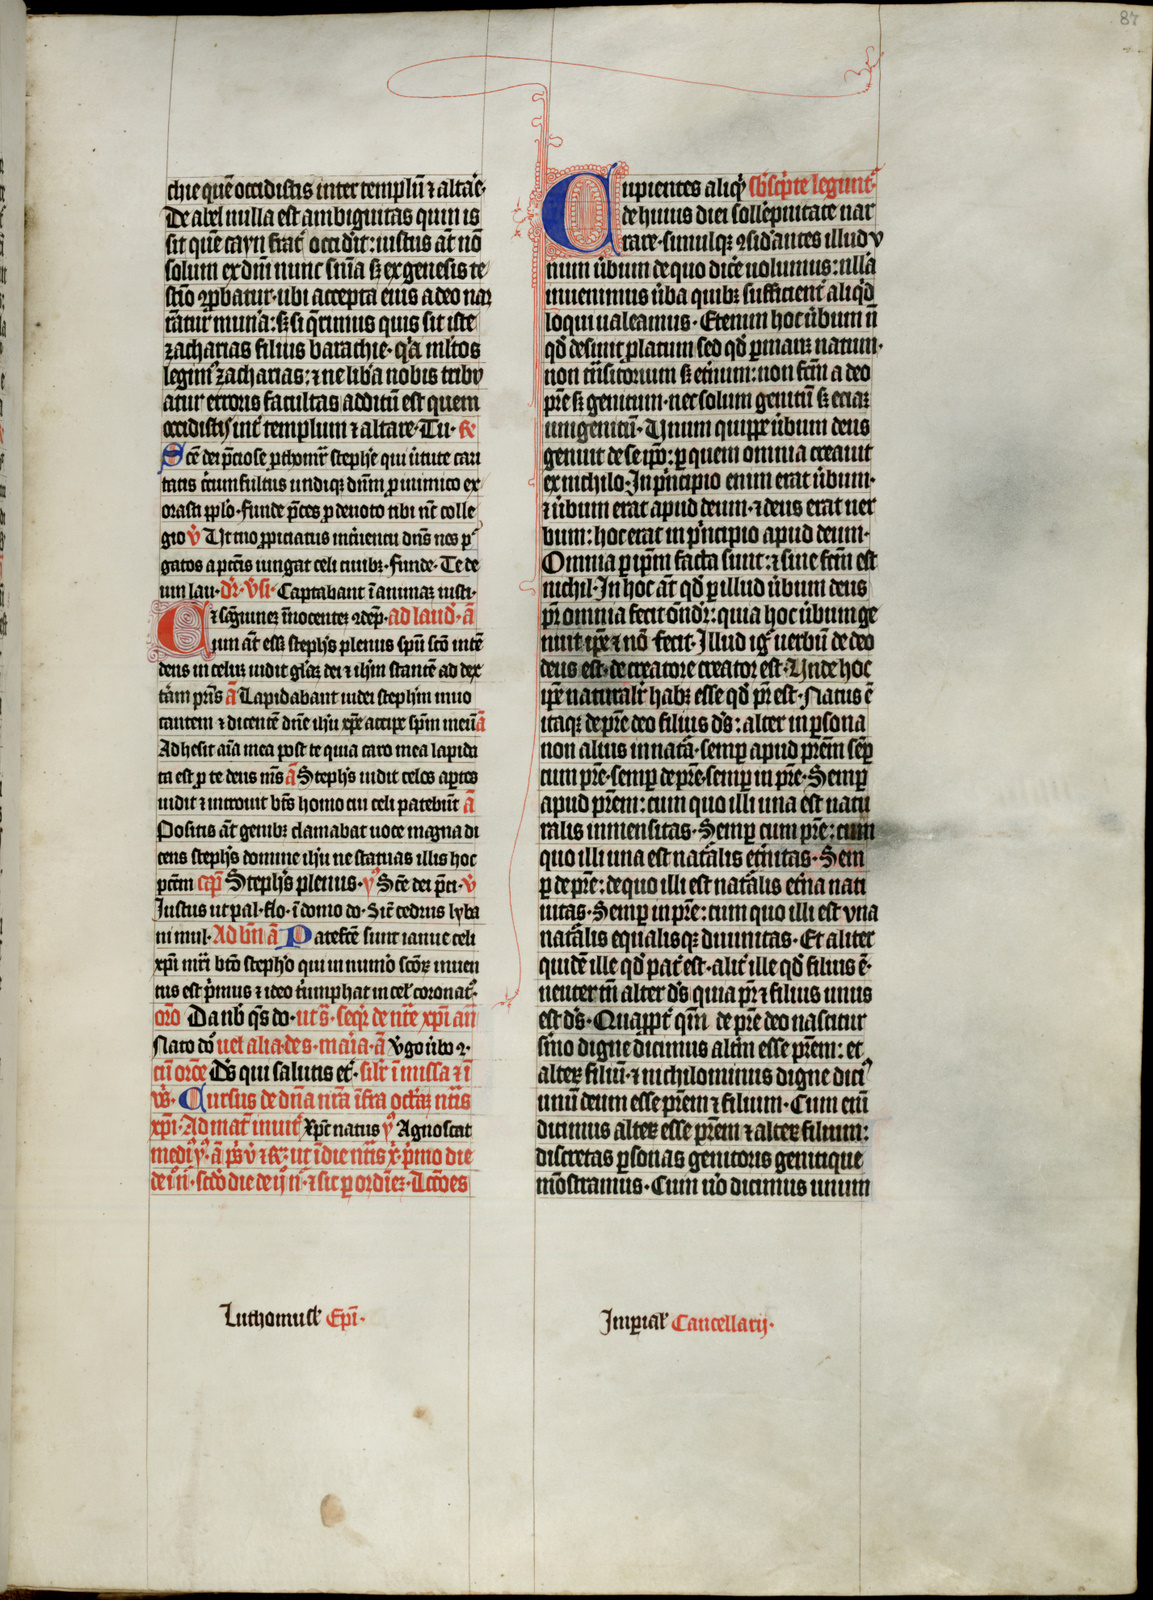 87
chie quē occidistis inter templū ⁊ altar̄e·
De abel nulla est ambiguitas quin is
sit quē cayn frat̄ occid̄it: iustus at̄ nō
solum ex dn̄i nunc sn̄ia sꝫ ex genesis te
stīo ꝓbatur· ubi accepta eius a deo nar
rātur mun̄a: sꝫ si q̄rimus quis sit iste
zacharias filius barachie· qꝛa ml̄tos
legim᷒ zacharias: ⁊ ne lib̄a nobis tribu
atur erroris facultas additū est quem
occidistis int̄ templum ⁊ altare· Tu· Re
Sc̄e dei p̄ciose ꝓthomr̄ steph̄e qui v̄tute cari
tatis c̄rcumfultus undiqꝫ dn̄m ꝓ inimico ex
orasti pp̄lo· Funde p̄ces ꝓ deuoto tibi nūt colle
gio V̄ Ut tuo ꝓpiciatus int̄uentu dn̄s nos p᷒
gatos a pcc̄is iungat celi ciuibꝫ· Funde· Te de
um lau· d̄r· v̄si· Captabant ī animaꝫ iusti·
Et sāḡuineꝫ īnocenteꝫ ꝯdēp̄· ad laud̄· ā
Cum at̄ ess̄ꝫ steph̄s plenus spū sc̄ō intē
dens in celuꝫ uidit gl̄iaꝫ dei ⁊ ih̄m stantē ad dex
tām pr̄is ā Lapidabant iudei steph̄m inuo
cantem ⁊ dicentē dn̄e ih̄u xp̄e accipe spm̄ meū ā
Adhesit aīa mea post te quia caro mea lapida
ta est ꝓ te deus m̄s ā Steph̄s uidit celos ap̄tos
uidit ⁊ introiuit bt̄s homo cui celi patebūt ā
Positis at̄ genibꝫ clamabat uoce magna di
cens steph̄s domine ih̄u ne statuas illis hoc
pctm̄ cap̄ Steph̄s plenus· y᷒ Sc̄e dei p̄ci· v̄
Iustus ut pal· flo· ī domo do· Sic̄ cedrus lyba
ni mul· Ad bn̄ ā Patefc̄e sunt ianue celi
xp̄i mr̄i bt̄o steph̄o qui in num̄o sc̄oꝝ inuen
tus est p̄mus ⁊ ideo t̄umphat in cel᷒ coronat᷒·
or̄o Da nob̄ q̄s do· ut s᷒· seqr̄ de nr̄e xp̄i an̄
Nato do᷒ uel alia· de s· maria· ā V̄go ūbo ꝯ·
cū or̄oe D̄s qui salutis et᷒· silr̄ ī missa ⁊ ī
v̄s· Cursus de dn̄a nr̄a īfra octāꝫ nr̄is
xp̄i· Ad mat̄ inuit̄ Xp̄c natus y᷒ Agnoscat
mediy᷒· ā ps̄ v̄ ⁊ Rꝫ· ut ī die nr̄is x᷒· p̄mo die
de i᷒ n᷒· sc̄do die de ij n᷒· ⁊ sic ꝑ ordīeꝫ· Lcc̄oes
Cupientes aliqꝫ sb̄sc̄pte legunt̄·
de huius diei soll̄epnitate nar
rare· simulqꝫ ꝯsid̄antes illud v
num ūbum de quo dic̄e uolumus: nlla
inuenimus ūba quibꝫ sufficient̄ aliqd̄
loqui ualeamus· Etenim hoc ūbum n̄
qd̄ desiuit platum sed qd̄ ꝑmanꝫ natum·
non trāsitorium sꝫ et̄num: non fc̄m a deo
pr̄e sꝫ genitum· nec solum genitū sꝫ eciaꝫ
unigenitū· Unum quippe ūbum deus
genuit de se ip̄o: ꝑ quem omnia creauit
ex nichilo· In p̄ncipio enim erat ūbum·
⁊ ūbum erat apud deum· ⁊ deus erat uer
bum: hoc erat in p̄ncipio apud deum·
Omnia ꝑ ipm̄ facta sunt: ⁊ sine fc̄m est
nichil· In hoc at̄ qd̄ ꝑ illud ūbum deus
pr̄ omnia fecit on̄dr̄: quia hoc ūbum ge
nuit ip̄e ⁊ nō fecit· Illud ig᷒ uerbū de deo
deus est· de creatore creator est· Unde hoc
ip̄e naturalr̄ habꝫ esse qd̄ pr̄ est· Natus ē
itaqꝫ de pr̄e deo filius d̄s: alter in ꝑsona
non alius in natā· semꝑ apud pr̄em sēꝑ
cum pr̄e· semꝑ de pr̄e· semꝑ in pr̄e· Semꝑ
apud pr̄em: cum quo illi una est natu
ralis inmensitas· Semꝑ cum pr̄e: cum
quo illi una est natālis et̄nitas· Sem
ꝑ de pr̄e: de quo illi est natālis et̄na nati
uitas· Semꝑ in pr̄e: cum quo illi est vna
natālis equalisqꝫ diuinitas· Et aliter
quidē ille qd̄ pat̄ est· alit̄ ille qd̄ filius ē·
neuter tn̄ alter d̄s quia pr̄ ⁊ filius unus
est d̄s· Quaꝓpt̄ qm̄ de pr̄e deo nascitur
sm̄o digne dicimus altm̄ esse pr̄em: et
alteꝝ filiū· ⁊ nichilominus digne dici᷒
unū deum esse pr̄em ⁊ filium· Cum eni
dicimus alteꝝ esse pr̄em ⁊ alteꝝ filium:
discretas ꝑsonas genitoris genitique
mōstramus· Cum ūo dicimus unum
Luthomusl̄ Ep̄i·
Imꝑial̄ Cancellarij·